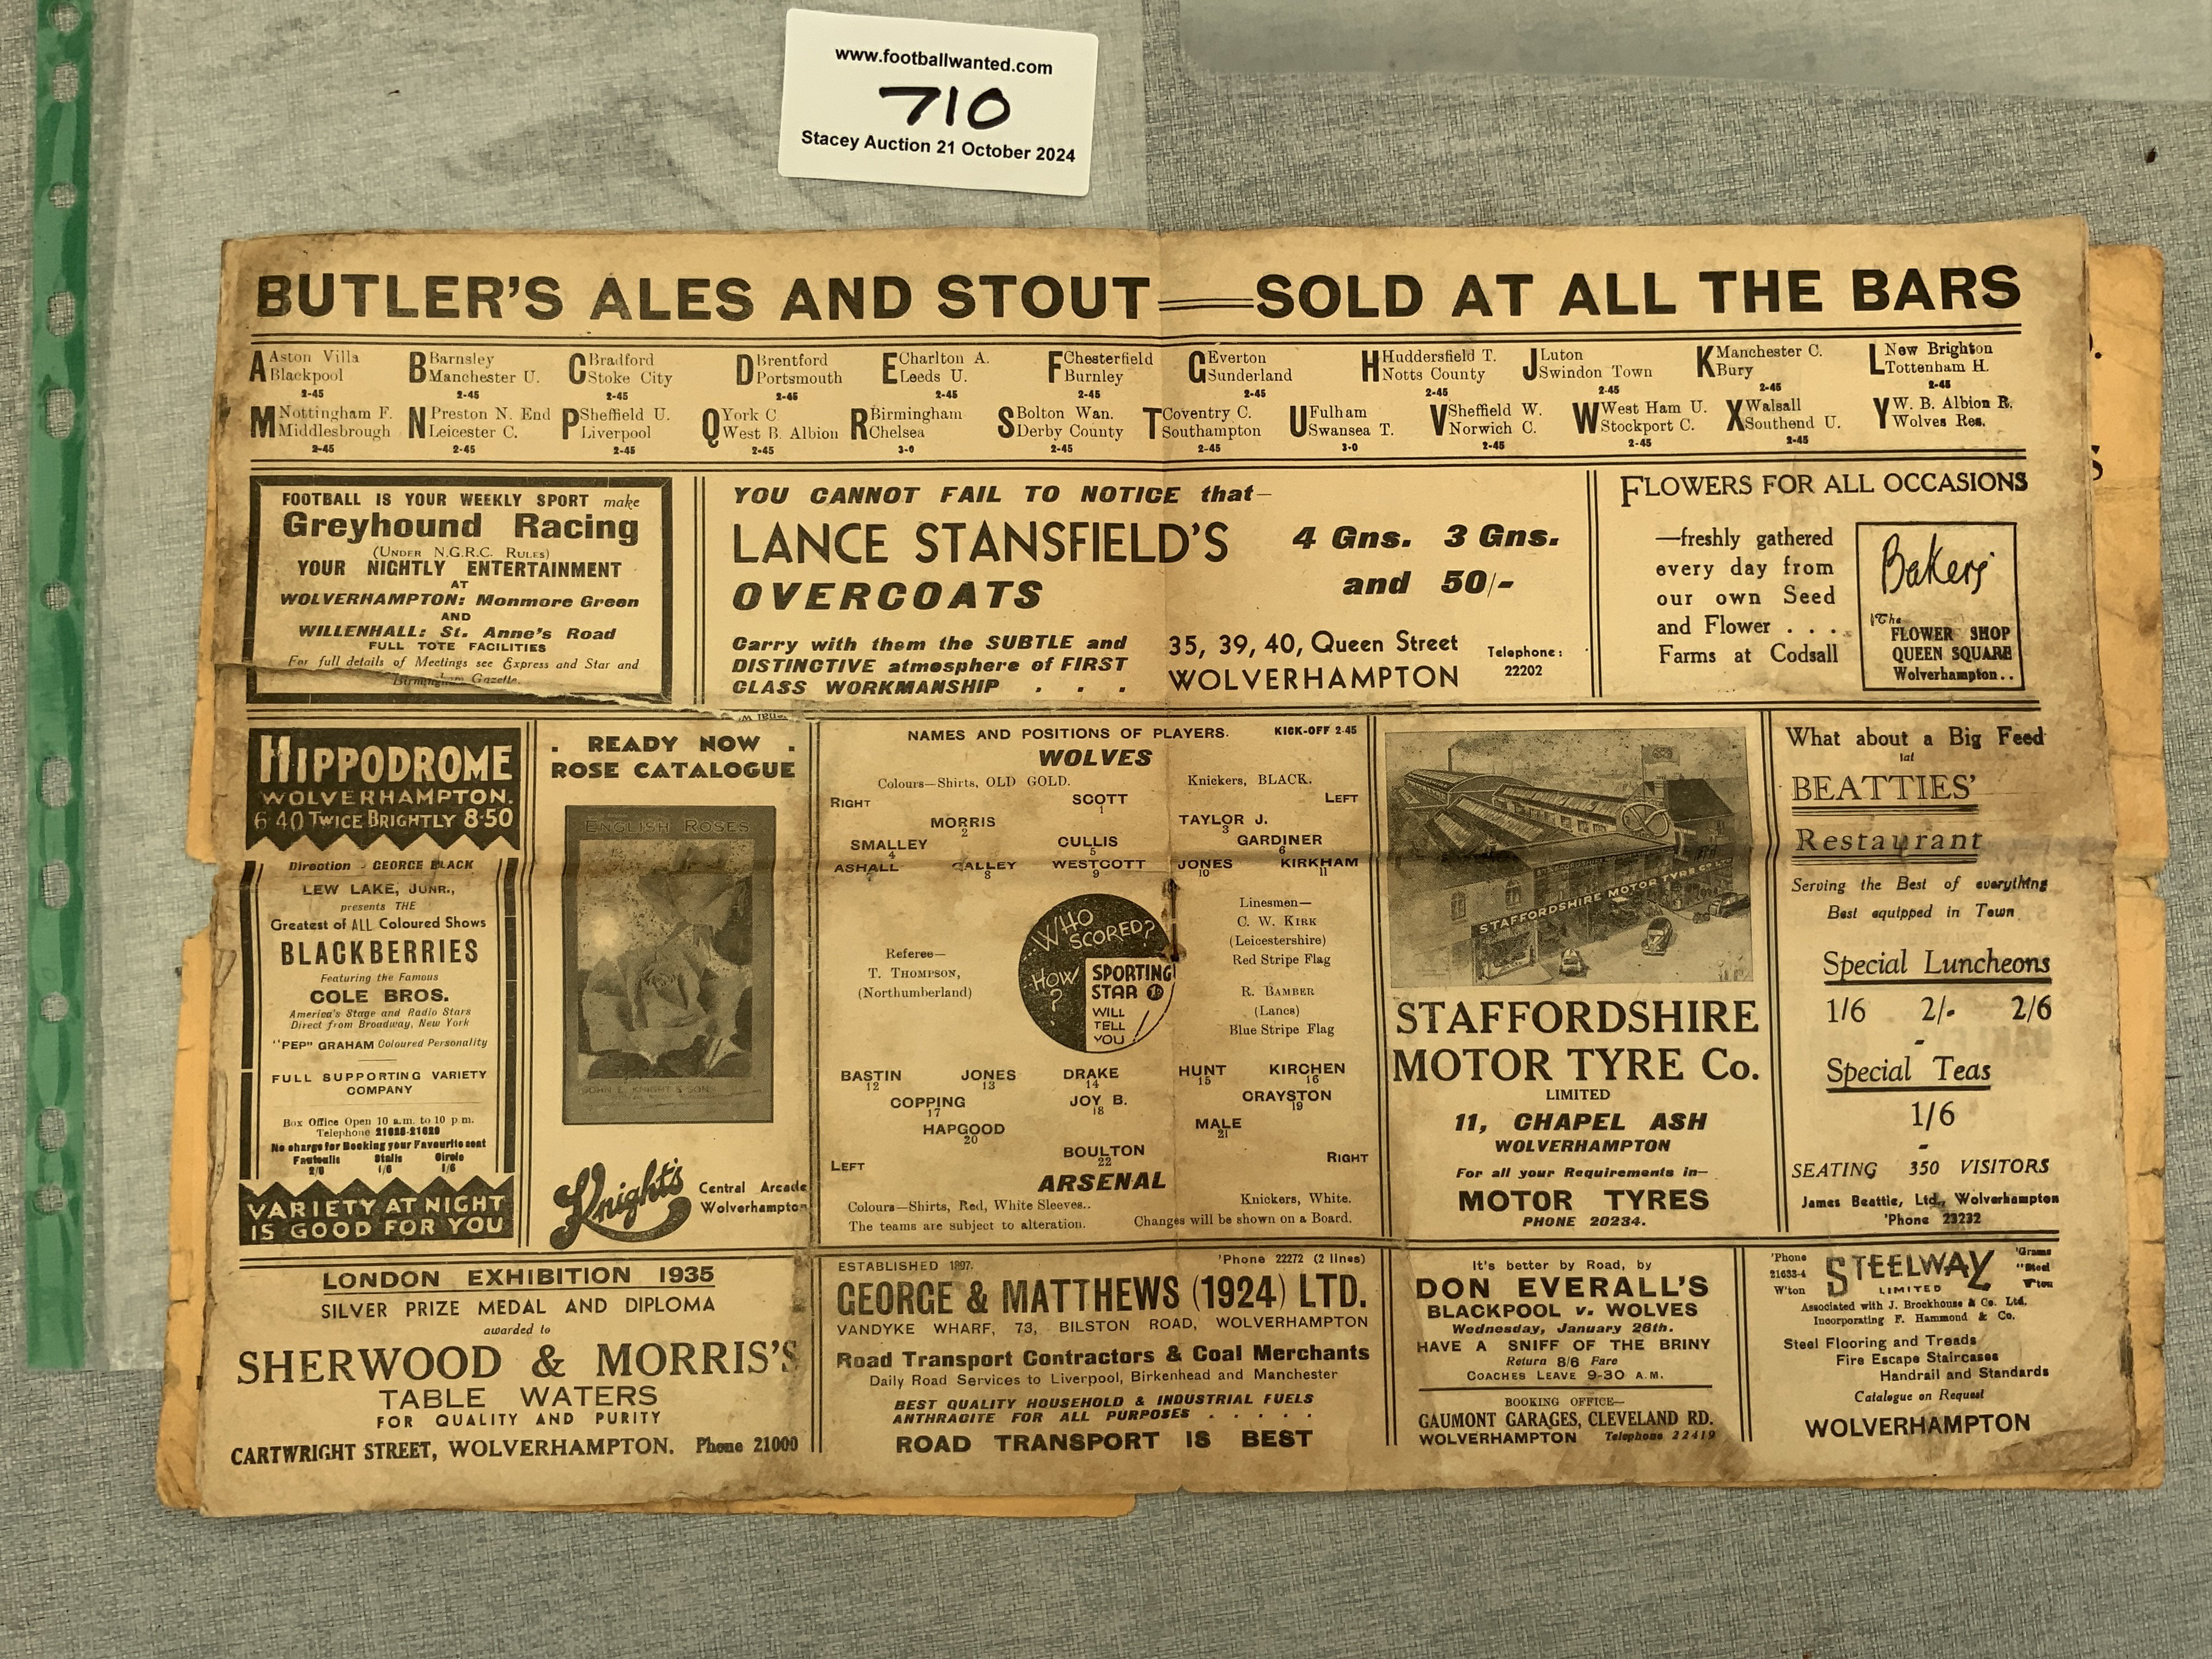 www.footballwanted.com
710
Stacey Auction 21 October 2024
BUTLER'S ALES AND STOUT — SOLD AT ALL THE BARS
A Aston Villa
Blackpool
2-45
B Barnsley
Manchester U.
2-45
C Bradford
Stoke City
2-45
D Brentford
Portsmouth
2-45
E Charlton A.
Leeds U.
2-45
F Chesterfield
Burnley
2-45
G Everton
Sunderland
2-45
H Huddersfield T.
Notts County
2-45
J Luton
Swindon Town
2-45
K Manchester C.
Bury
2-45
L New Brighton
Tottenham H.
2-45
M Nottingham F.
Middlesbrough
2-45
N Preston N. End
Leicester C.
2-45
P Sheffield U.
Liverpool
2-45
Q York C
West B. Albion
2-45
R Birmingham
Chelsea
3-0
S Bolton Wan.
Derby County
2-45
T Coventry C.
Southampton
2-45
U Fulham
Swansea T.
3-0
V Sheffield W.
Norwich C.
2-45
W West Ham U.
Stockport C.
2-45
X Walsall
Southend U.
2-45
Y W. B. Albion R.
Wolves Res.
FOOTBALL IS YOUR WEEKLY SPORT make
Greyhound Racing
(UNDER N.G.R.C. RULES)
YOUR NIGHTLY ENTERTAINMENT
AT
WOLVERHAMPTON: Monmore Green
AND
WILLENHALL: St. Anne's Road
FULL TOTE FACILITIES
For full details of Meetings see Express and Star and
Birmingham Gazette.
YOU CANNOT FAIL TO NOTICE that—
LANCE STANSFIELD'S
OVERCOATS
4 Gns. 3 Gns.
and 50/-
Carry with them the SUBTLE and
DISTINCTIVE atmosphere of FIRST
CLASS WORKMANSHIP . . .
35, 39, 40, Queen Street
WOLVERHAMPTON
Telephone:
22202
FLOWERS FOR ALL OCCASIONS
—freshly gathered
every day from
our own Seed
and Flower . . .
Farms at Codsall
Bakers'
The
FLOWER SHOP
QUEEN SQUARE
Wolverhampton..
HIPPODROME
WOLVERHAMPTON.
6·40 TWICE BRIGHTLY 8·50
Direction - GEORGE BLACK
LEW LAKE, JUNR.,
presents THE
Greatest of ALL Coloured Shows
BLACKBERRIES
Featuring the Famous
COLE BROS.
America's Stage and Radio Stars
Direct from Broadway, New York
"PEP" GRAHAM Coloured Personality
FULL SUPPORTING VARIETY
COMPANY
Box Office Open 10 a.m. to 10 p m.
Telephone 21028-21029
No charge for Booking your Favourite seat
Fauteuils Stalls Circle
2/6 1/6 1/6
VARIETY AT NIGHT
IS GOOD FOR YOU
. READY NOW .
ROSE CATALOGUE
ENGLISH ROSES
JOHN E. KNIGHT & SON
Knight's
Central Arcade
Wolverhampton
NAMES AND POSITIONS OF PLAYERS. KICK-OFF 2-45
WOLVES
Colours—Shirts, OLD GOLD. Knickers, BLACK.
RIGHT SCOTT LEFT
1
MORRIS TAYLOR J.
2 3
SMALLEY CULLIS GARDINER
4 5 6
ASHALL GALLEY WESTCOTT JONES KIRKHAM
7 8 9 10 11
Referee—
T. THOMPSON,
(Northumberland)
WHO SCORED?
HOW?
SPORTING
STAR 1D
WILL
TELL
YOU
Linesmen—
C. W. KIRK
(Leicestershire)
Red Stripe Flag
R. BAMBER
(Lancs)
Blue Stripe Flag
BASTIN JONES DRAKE HUNT KIRCHEN
12 13 14 15 16
COPPING JOY B. CRAYSTON
17 18 19
HAPGOOD MALE
20 21
BOULTON
22
LEFT RIGHT
ARSENAL
Colours—Shirts, Red, White Sleeves.. Knickers, White.
The teams are subject to alteration. Changes will be shown on a Board.
STAFFORDSHIRE MOTOR TYRE Co LTD
STAFFORDSHIRE
MOTOR TYRE Co.
LIMITED
11, CHAPEL ASH
WOLVERHAMPTON
For all your Requirements in—
MOTOR TYRES
PHONE 20234.
What about a Big Feed
at
BEATTIES'
Restaurant
Serving the Best of everything
Best equipped in Town
Special Luncheons
1/6 2/- 2/6
-
Special Teas
1/6
-
SEATING 350 VISITORS
James Beattie, Ltd., Wolverhampton
'Phone 23232
LONDON EXHIBITION 1935
SILVER PRIZE MEDAL AND DIPLOMA
awarded to
SHERWOOD & MORRIS'S
TABLE WATERS
FOR QUALITY AND PURITY
CARTWRIGHT STREET, WOLVERHAMPTON. Phone 21000
ESTABLISHED 1897. 'Phone 22272 (2 lines)
GEORGE & MATTHEWS (1924) LTD.
VANDYKE WHARF, 73, BILSTON ROAD, WOLVERHAMPTON
Road Transport Contractors & Coal Merchants
Daily Road Services to Liverpool, Birkenhead and Manchester
BEST QUALITY HOUSEHOLD & INDUSTRIAL FUELS
ANTHRACITE FOR ALL PURPOSES . . . . .
ROAD TRANSPORT IS BEST
It's better by Road, by
DON EVERALL'S
BLACKPOOL v. WOLVES
Wednesday, January 26th.
HAVE A SNIFF OF THE BRINY
Return 8/6 Fare
COACHES LEAVE 9-30 A.M.
BOOKING OFFICE—
GAUMONT GARAGES, CLEVELAND RD.
WOLVERHAMPTON Telephone 22419
'Phone
21633-4
W'ton
STEELWAY
LIMITED
'Grams
"Steel
W'ton
Associated with J. Brockhouse & Co. Ltd.
Incorporating F. Hammond & Co.
Steel Flooring and Treads
Fire Escape Staircases
Handrail and Standards
Catalogue on Request
WOLVERHAMPTON